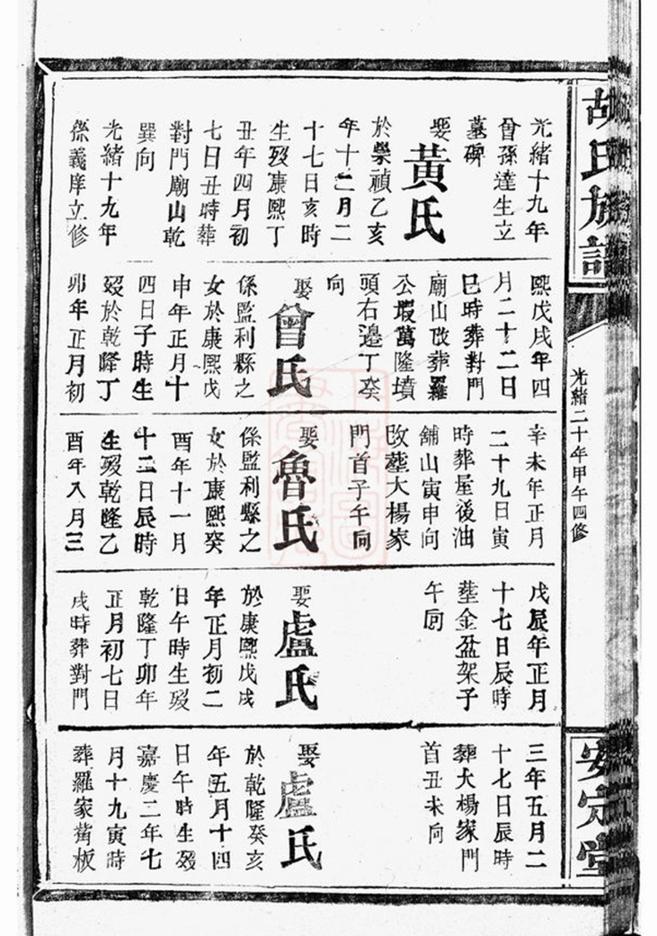 胡氏族譜
光緒二十年甲午四修
安定堂
光緒十九年
曾孫達生立
墓碑
娶黃氏
於崇禎乙亥
年十二月二
十七日亥時
生歿康熙丁
丑年四月初
七日丑時葬
對門廟山乾
巽向
光緒十九年
孫義庠立修
熙戊戌年四
月二十二日
巳時葬對門
廟山改葬羅
公塅萬隆墳
頭右邊丁癸
向
娶曾氏
係監利縣之
女於康熙戊
申年正月十
四日子時生
歿於乾隆丁
卯年正月初
辛未年正月
二十九日寅
時葬屋後油
鋪山寅申向
改塟大楊家
門首子午向
娶魯氏
係監利縣之
女於康熙癸
酉年十一月
十二日辰時
生歿乾隆乙
酉年八月三
戊辰年正月
十七日辰時
塟金盆架子
午向
娶盧氏
於康熙戊戌
年正月初二
日午時生歿
乾隆丁卯年
正月初七日
戌時葬對門
三年五月二
十七日辰時
葬大楊家門
首丑未向
娶盧氏
於乾隆癸亥
年五月十四
日午時生歿
嘉慶二年七
月十九寅時
葬羅家 板